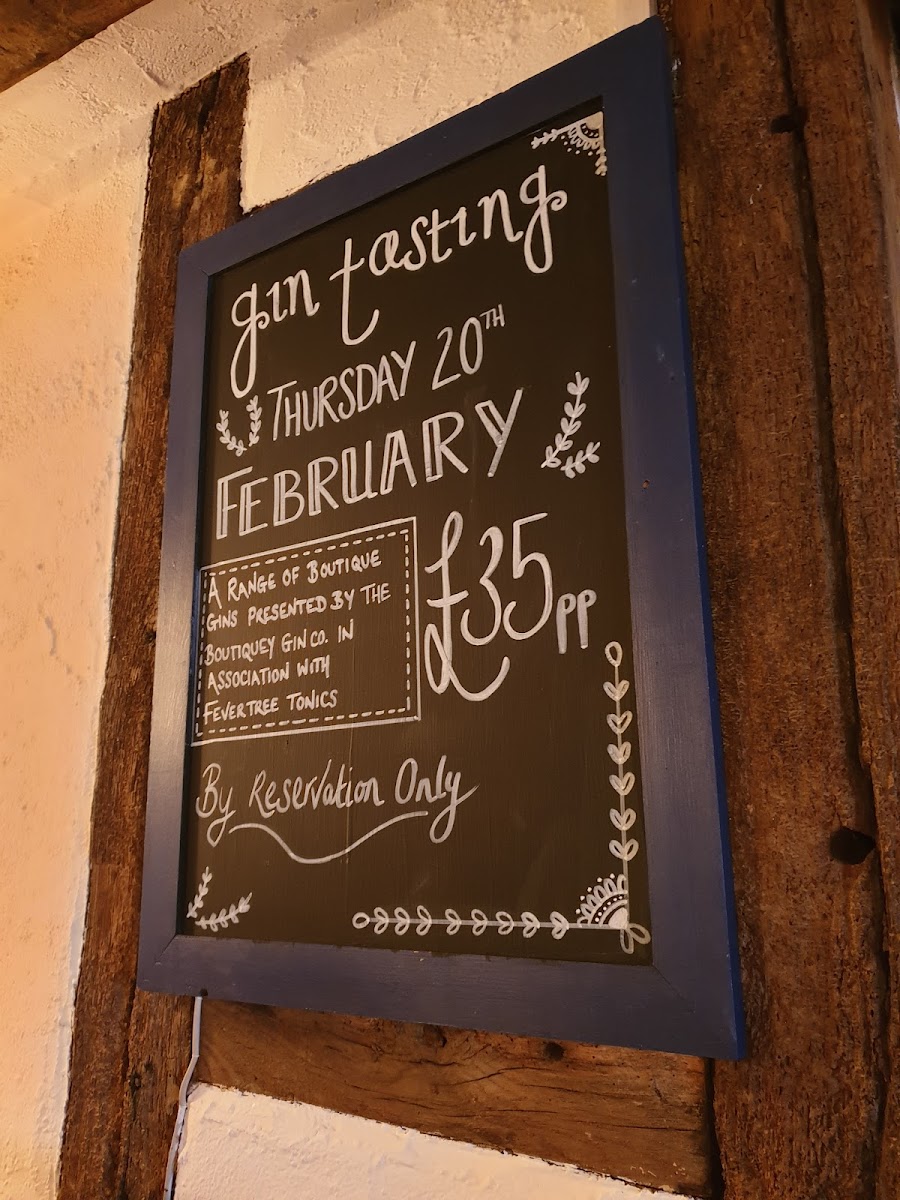 gin tasting
THURSDAY 20TH
FEBRUARY
A RANGE OF BOUTIQUE
GINS PRESENTED BY THE
BOUTIQUEY GIN CO. IN
ASSOCIATION WITH
FEVERTREE TONICS
£35pp
By Reservation Only